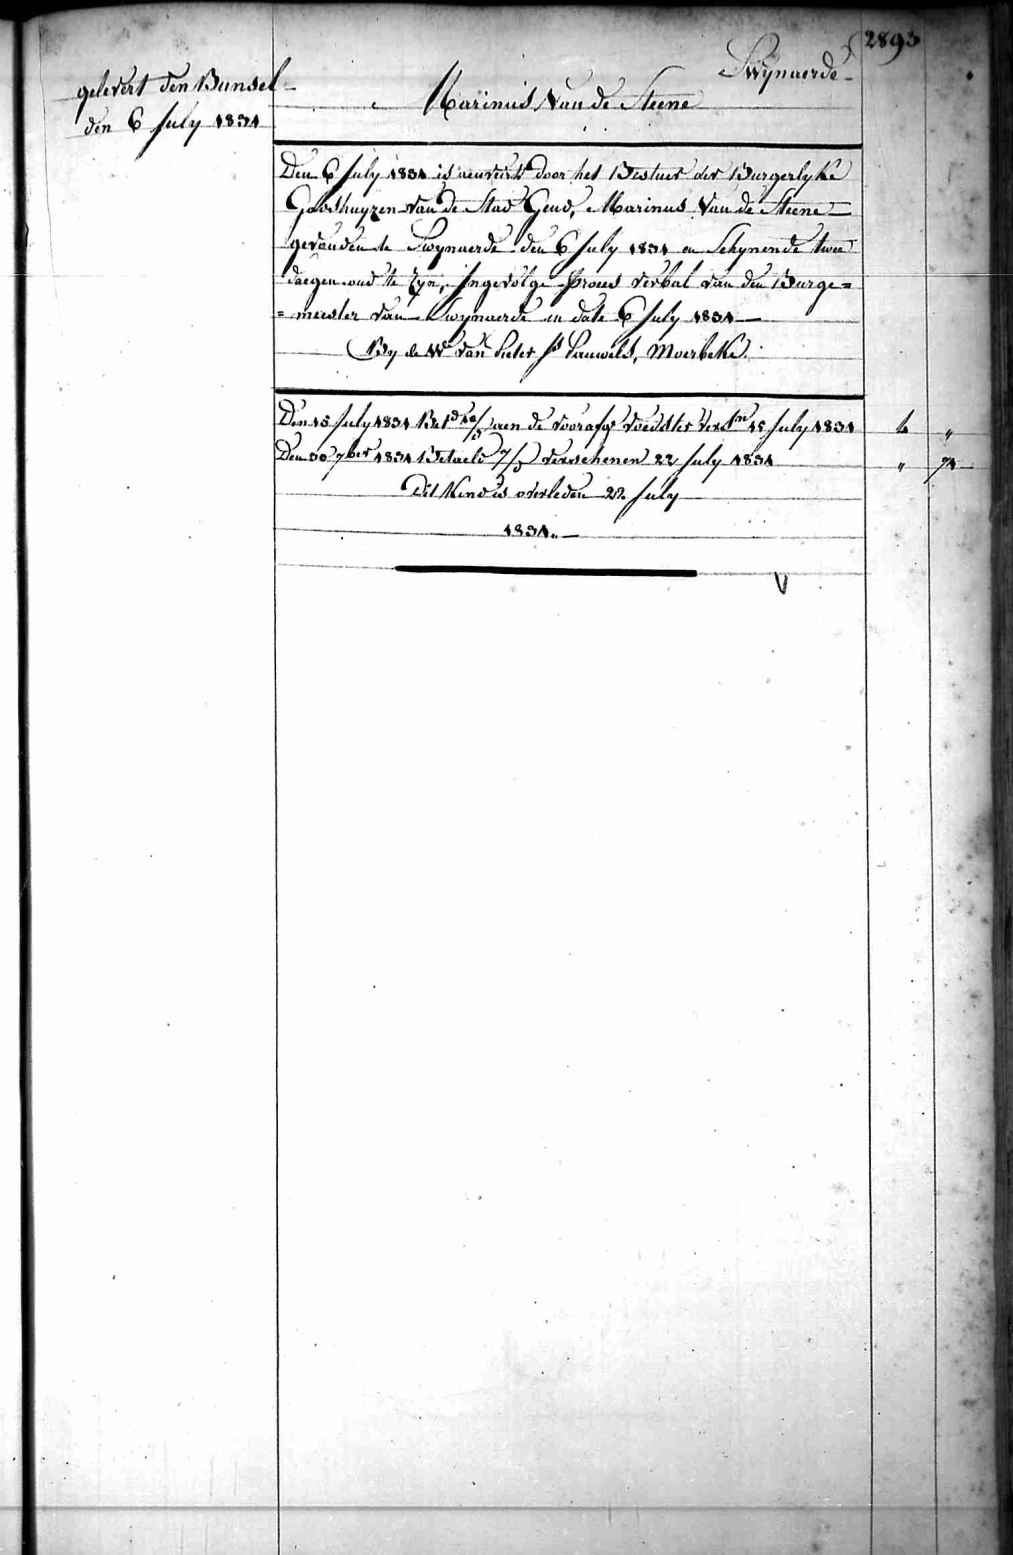 2893
Swynaerde
gelevert den Bunsel
den 6 July 1834
Marinus Van de Steene
Den 6 July 1834 is aenveirt door het Bestuer der Burgerlyke
Godshuyzen van de Stad Gend, Marinus Van de Steene
gevonden te Swynaerde den 6 July 1834 en Schynende twee
daegen oud te zyn, Ingevolge Proces verbal van den Burge=
=meester van Swynaerde in date 6 July 1834
By de We van Pieter Js Pauwels, Moerbeke.
Den 15 July 1834 Betd aen de voorafg voedster 15 July 1834 4 "
Den 30 7ber 1834 Betaeld verschenen 22 July 1834 " 74
Dit Kind is overleden 22 July
1834.